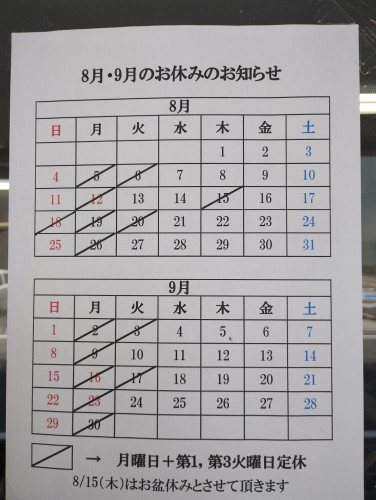 8月・9月のお休みのお知らせ
8月
日 月 火 水 木 金 土
1 2 3
4 5 6 7 8 9 10
11 12 13 14 15 16 17
18 19 20 21 22 23 24
25 26 27 28 29 30 31
9月
日 月 火 水 木 金 土
1 2 3 4 5、 6 7
8 9 10 11 12 13 14
15 16 17 18 19 20 21
22 23 24 25 26 27 28
29 30
→ 月曜日＋第1，第3火曜日定休
8/15(木)はお盆休みとさせて頂きます